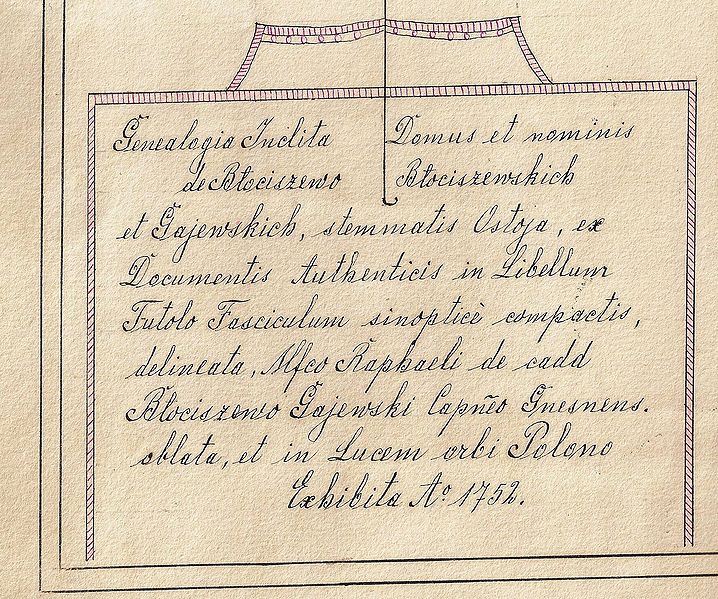 Genealogia Inclita Domus et nominis
de Błociszewo Błociszewskich
et Gajewskich, stemmatis Ostoja, ex
Documentis Authenticis in Libellum
Tutolo Fasciculum sinopticè compactis,
delineata, Mfco Raphaeli de cadd
Błociszewo Gajewski Capñeo Gnesnens.
oblata, et in Lucem orbi Polono
Exhibita Aº 1752.